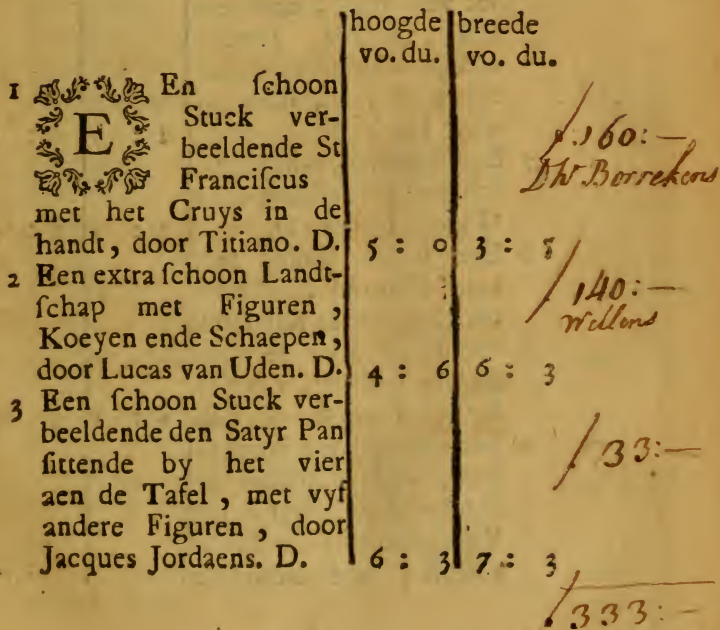 hoogde breede
vo. du. vo. du.
1 En ſchoon
Stuck ver-
beeldende St
Franciſcus
met het Cruys in de
handt, door Titiano. D. 5 : 0 3 : 5
160:—
Dhr Borrekens
2 Een extra ſchoon Landt-
ſchap met Figuren ,
Koeyen ende Schaepen,
door Lucas van Uden. D. 4 : 6 6 : 3
140:—
Willens
3 Een ſchoon Stuck ver-
beeldende den Satyr Pan
ſittende by het vier
aen de Tafel , met vyf
andere Figuren , door
Jacques Jordaens. D. 6 : 3 7 : 3
33:—
333:—